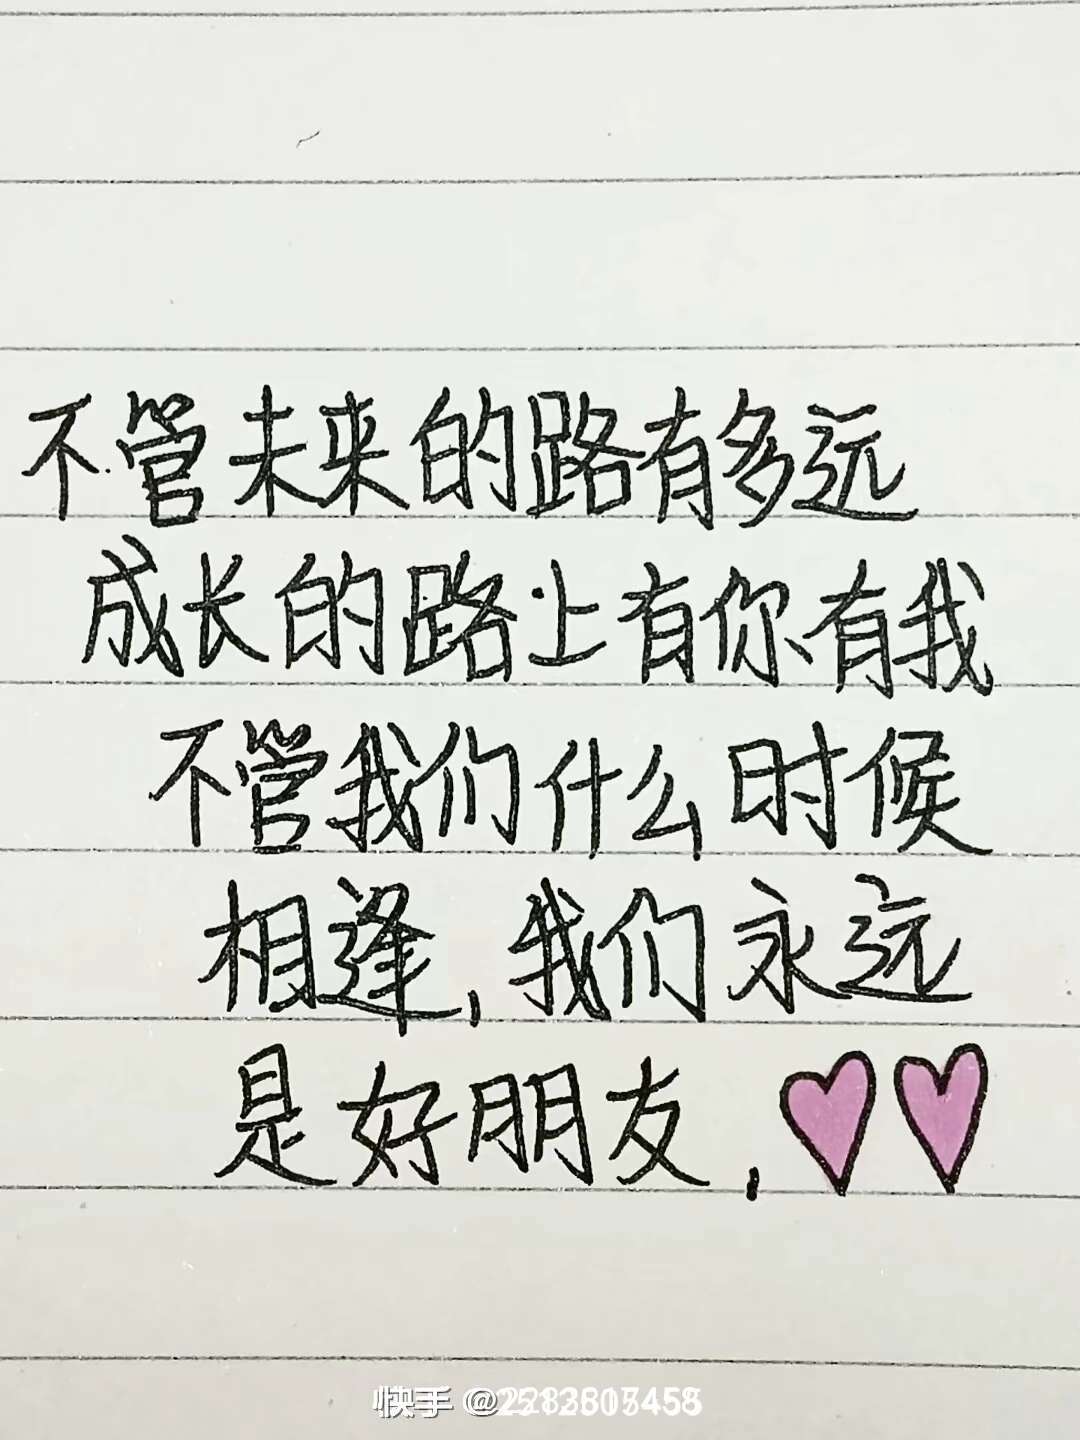 不管未来的路有多远
成长的路上有你有我
不管我们什么时候
相逢,我们永远
是好朋友,
快手